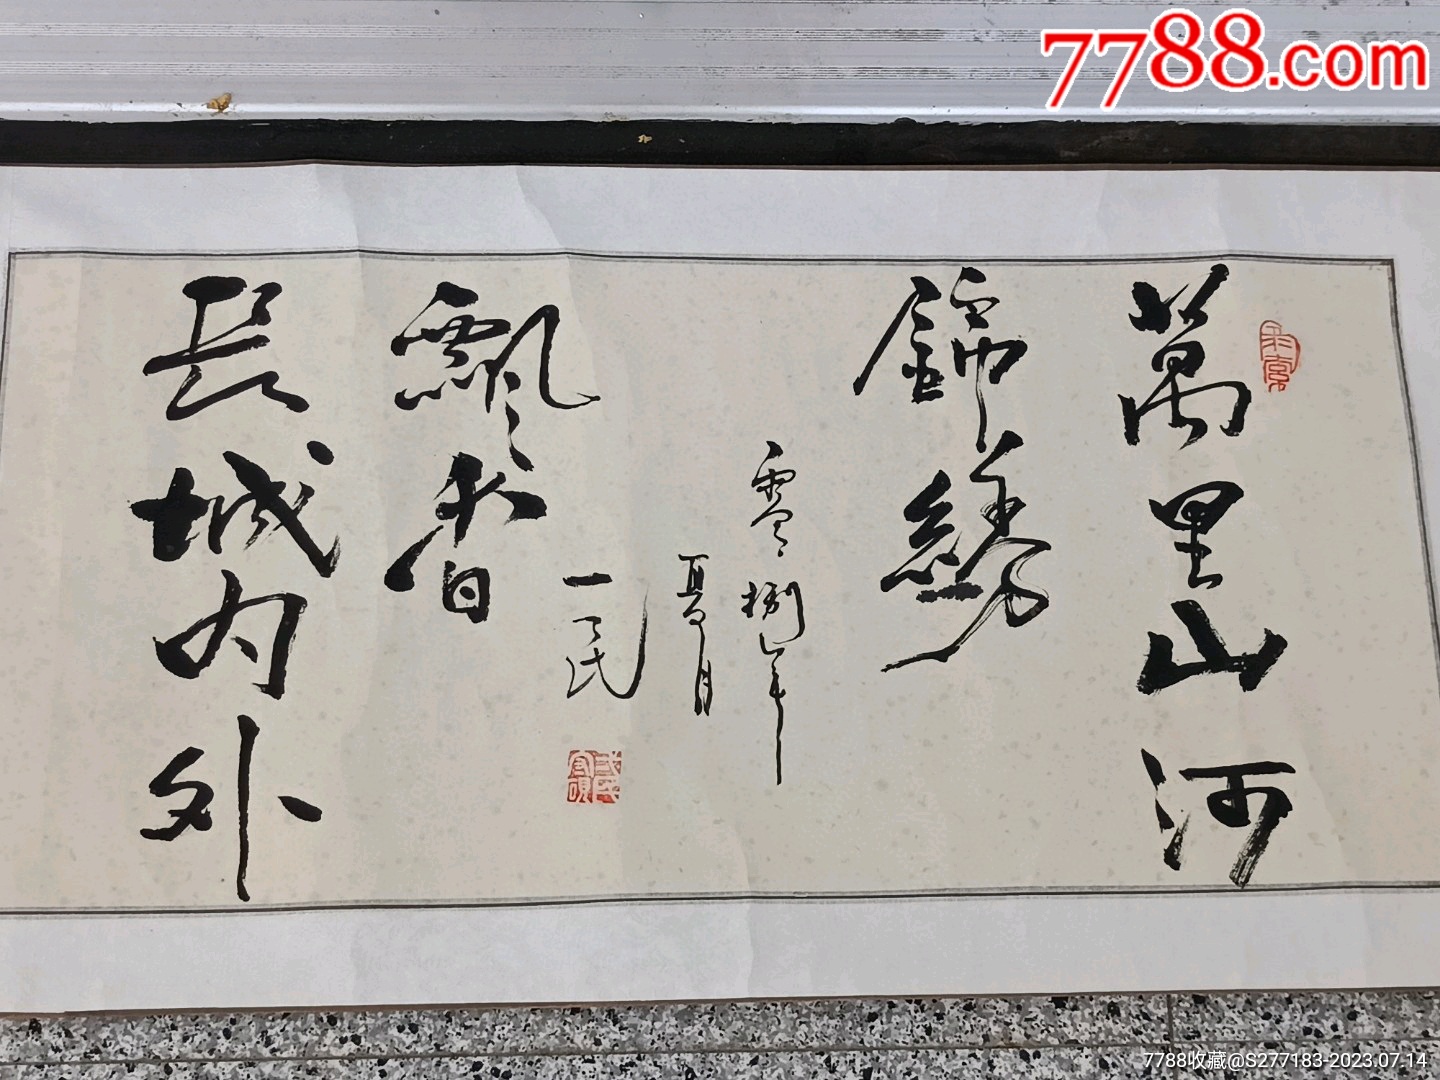 7788.com
萬里山河
錦繡
零捌年
夏月
一民
飄香
長城内外
7788收藏@S277183-2023.07.14